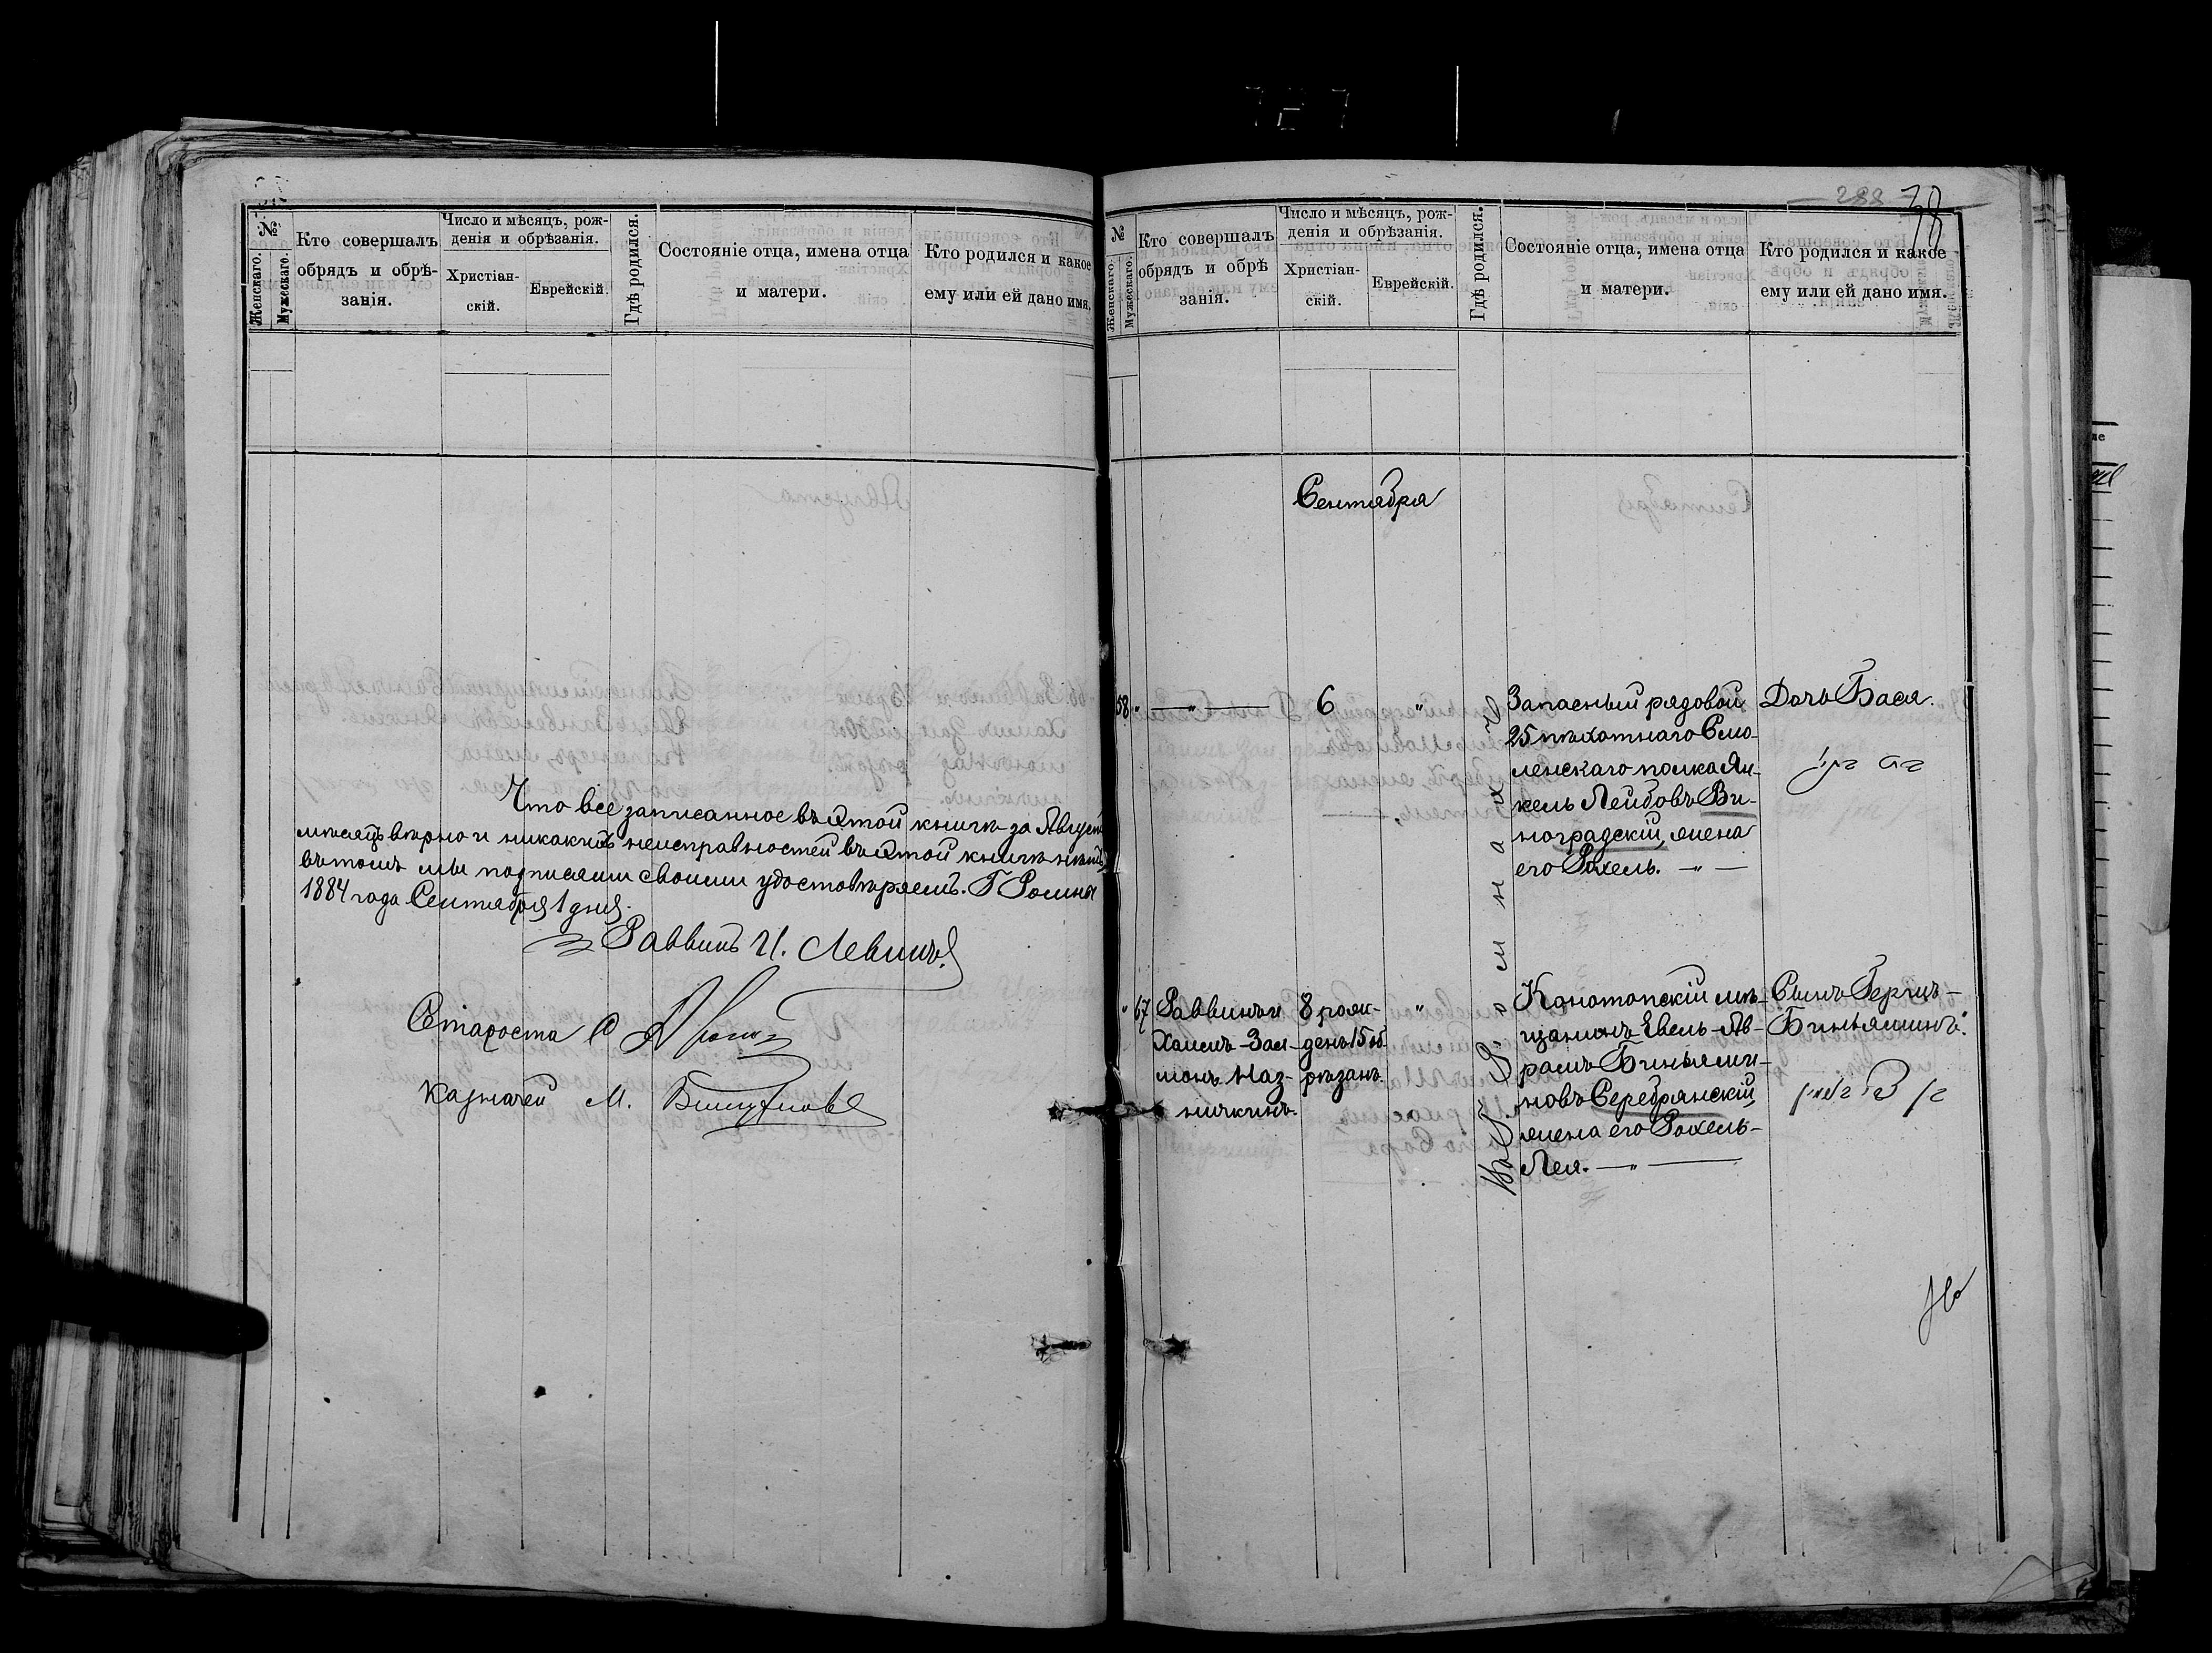 №
Женскаго.
Мужескаго.
Кто совершалъ
обрядъ и обрѣ-
занія.
Число и мѣсяцъ, рож-
денія и обрѣзанія.
Христіан-
скій.
Еврейскій.
Гдѣ родился.
Состояніе отца, имена отца
и матери.
Кто родился и какое
ему или ей дано имя.
Что все записанное въ этой книгѣ за Августъ
мѣсяцъ вѣрно и никакихъ неисправностей въ этой книгѣ нѣтъ
въ томъ мы подписями своими удостовѣряемъ. Г Ромны
1884 года Сентября 1 дня.
Раввинъ И. Левинъ
Староста
Казначей М.
288 38
№
Женскаго.
Мужескаго.
Кто совершалъ
обрядъ и обрѣ
занія.
Число и мѣсяцъ, рож-
денія и обрѣзанія.
Христіан-
скій.
Еврейскій.
Гдѣ родился.
Состояніе отца, имена отца
и матери.
Кто родился и какое
ему или ей дано имя.
Сентября
Въ г. Ромнахъ
58 " — " — 6 "
Запасный рядовой
25 пѣхотнаго Смо-
ленскаго полка Ян-
кель Лейбовъ Ви-
ноградскій, жена
его Рохель. — " —
Дочь Бася.
" 67
Раввинъ и
Хаимъ-Зал-
монъ Маз-
ничкинъ.
8 рож-
денъ 15 об-
рѣзанъ.
"
Конотопскій мѣ-
щанинъ Евель-Ав-
рамъ Биньями-
новъ Серебрянскій,
жена его Рохель-
Лея. — " —
Сынъ Гершъ-
Биньяминъ.